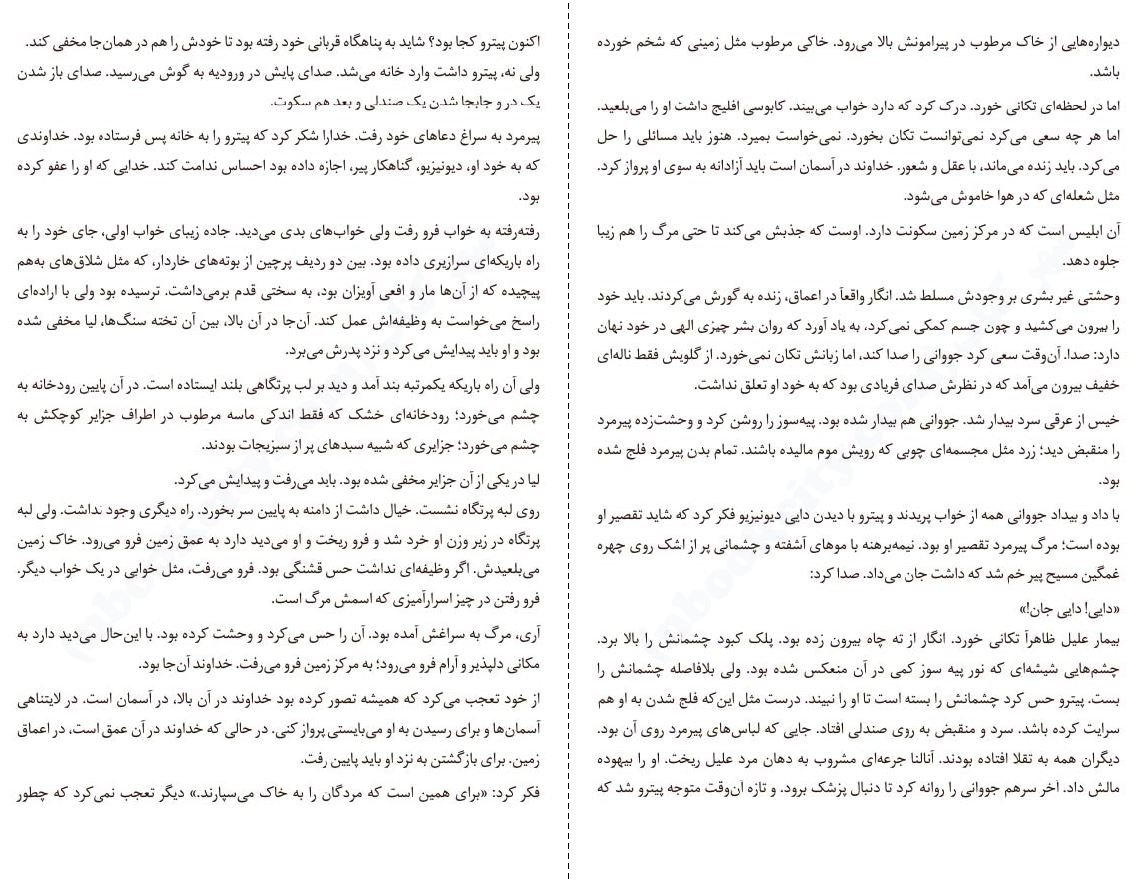 اکنون پیترو کجا بود؟ شاید به پناهگاه قربانی خود رفته بود تا خودش را هم در همان‌جا مخفی کند.
ولی نه، پیترو داشت وارد خانه می‌شد. صدای پایش در ورودیه به گوش می‌رسید. صدای باز شدن
یک در و جابجا شدن یک صندلی و بعد هم سکوت.
پیرمرد به سراغ دعاهای خود رفت. خدارا شکر کرد که پیترو را به خانه پس فرستاده بود. خداوندی
که به خود او، دیونیزیو، گناهکار پیر، اجازه داده بود احساس ندامت کند. خدایی که او را عفو کرده
بود.
رفته‌رفته به خواب فرو رفت ولی خواب‌های بدی می‌دید. جاده زیبای خواب اولی، جای خود را به
راه باریکه‌ای سرازیری داده بود. بین دو ردیف پرچین از بوته‌های خاردار، که مثل شلاق‌های به‌هم
پیچیده که از آن‌ها مار و افعی آویزان بود، به سختی قدم برمی‌داشت. ترسیده بود ولی با اراده‌ای
راسخ می‌خواست به وظیفه‌اش عمل کند. آن‌جا در آن بالا، بین آن تخته سنگ‌ها، لیا مخفی شده
بود و او باید پیدایش می‌کرد و نزد پدرش می‌برد.
ولی آن راه باریکه یکمرتبه بند آمد و دید بر لب پرتگاهی بلند ایستاده است. در آن پایین رودخانه به
چشم می‌خورد؛ رودخانه‌ای خشک که فقط اندکی ماسه مرطوب در اطراف جزایر کوچکش به
چشم می‌خورد؛ جزایری که شبیه سبدهای پر از سبزیجات بودند.
لیا در یکی از آن جزایر مخفی شده بود. باید می‌رفت و پیدایش می‌کرد.
روی لبه پرتگاه نشست. خیال داشت از دامنه به پایین سر بخورد. راه دیگری وجود نداشت. ولی لبه
پرتگاه در زیر وزن او خرد شد و فرو ریخت و او می‌دید دارد به عمق زمین فرو می‌رود. خاک زمین
می‌بلعیدش. اگر وظیفه‌ای نداشت حس قشنگی بود. فرو می‌رفت، مثل خوابی در یک خواب دیگر.
فرو رفتن در چیز اسرارآمیزی که اسمش مرگ است.
آری، مرگ به سراغش آمده بود. آن را حس می‌کرد و وحشت کرده بود. با این‌حال می‌دید دارد به
مکانی دلپذیر و آرام فرو می‌رود؛ به مرکز زمین فرو می‌رفت. خداوند آن‌جا بود.
از خود تعجب می‌کرد که همیشه تصور کرده بود خداوند در آن بالا، در آسمان است. در لایتناهی
آسمان‌ها و برای رسیدن به او می‌بایستی پرواز کنی. در حالی که خداوند در آن عمق است، در اعماق
زمین. برای بازگشتن به نزد او باید پایین رفت.
فکر کرد: «برای همین است که مردگان را به خاک می‌سپارند.» دیگر تعجب نمی‌کرد که چطور
دیواره‌هایی از خاک مرطوب در پیرامونش بالا می‌رود. خاکی مرطوب مثل زمینی که شخم خورده
باشد.
اما در لحظه‌ای تکانی خورد. درک کرد که دارد خواب می‌بیند. کابوسی افلیج داشت او را می‌بلعید.
اما هر چه سعی می‌کرد نمی‌توانست تکان بخورد. نمی‌خواست بمیرد. هنوز باید مسائلی را حل
می‌کرد. باید زنده می‌ماند، با عقل و شعور. خداوند در آسمان است باید آزادانه به سوی او پرواز کرد.
مثل شعله‌ای که در هوا خاموش می‌شود.
آن ابلیس است که در مرکز زمین سکونت دارد. اوست که جذبش می‌کند تا حتی مرگ را هم زیبا
جلوه دهد.
وحشتی غیر بشری بر وجودش مسلط شد. انگار واقعاً در اعماق، زنده به گورش می‌کردند. باید خود
را بیرون می‌کشید و چون جسم کمکی نمی‌کرد، به یاد آورد که روان بشر چیزی الهی در خود نهان
دارد: صدا. آن‌وقت سعی کرد جووانی را صدا کند، اما زبانش تکان نمی‌خورد. از گلویش فقط ناله‌ای
خفیف بیرون می‌آمد که در نظرش صدای فریادی بود که به خود او تعلق نداشت.
خیس از عرقی سرد بیدار شد. جووانی هم بیدار شده بود. پیه‌سوز را روشن کرد و وحشت‌زده پیرمرد
را منقبض دید؛ زرد مثل مجسمه‌ای چوبی که رویش موم مالیده باشند. تمام بدن پیرمرد فلج شده
بود.
با داد و بیداد جووانی همه از خواب پریدند و پیترو با دیدن دایی دیونیزیو فکر کرد که شاید تقصیر او
بوده است؛ مرگ پیرمرد تقصیر او بود. نیمه‌برهنه با موهای آشفته و چشمانی پر از اشک روی چهره
غمگین مسیح پیر خم شد که داشت جان می‌داد. صدا کرد:
«دایی! دایی جان!»
بیمار علیل ظاهراً تکانی خورد. انگار از ته چاه بیرون زده بود. پلک کبود چشمانش را بالا برد.
چشم‌هایی شیشه‌ای که نور پیه سوز کمی در آن منعکس شده بود. ولی بلافاصله چشمانش را
بست. پیترو حس کرد چشمانش را بسته است تا او را نبیند. درست مثل این‌که فلج شدن به او هم
سرایت کرده باشد. سرد و منقبض به روی صندلی افتاد. جایی که لباس‌های پیرمرد روی آن بود.
دیگران همه به تقلا افتاده بودند. آنالنا جرعه‌ای مشروب به دهان مرد علیل ریخت. او را بیهوده
مالش داد. آخر سرهم جووانی را روانه کرد تا دنبال پزشک برود. و تازه آن‌وقت متوجه پیترو شد که